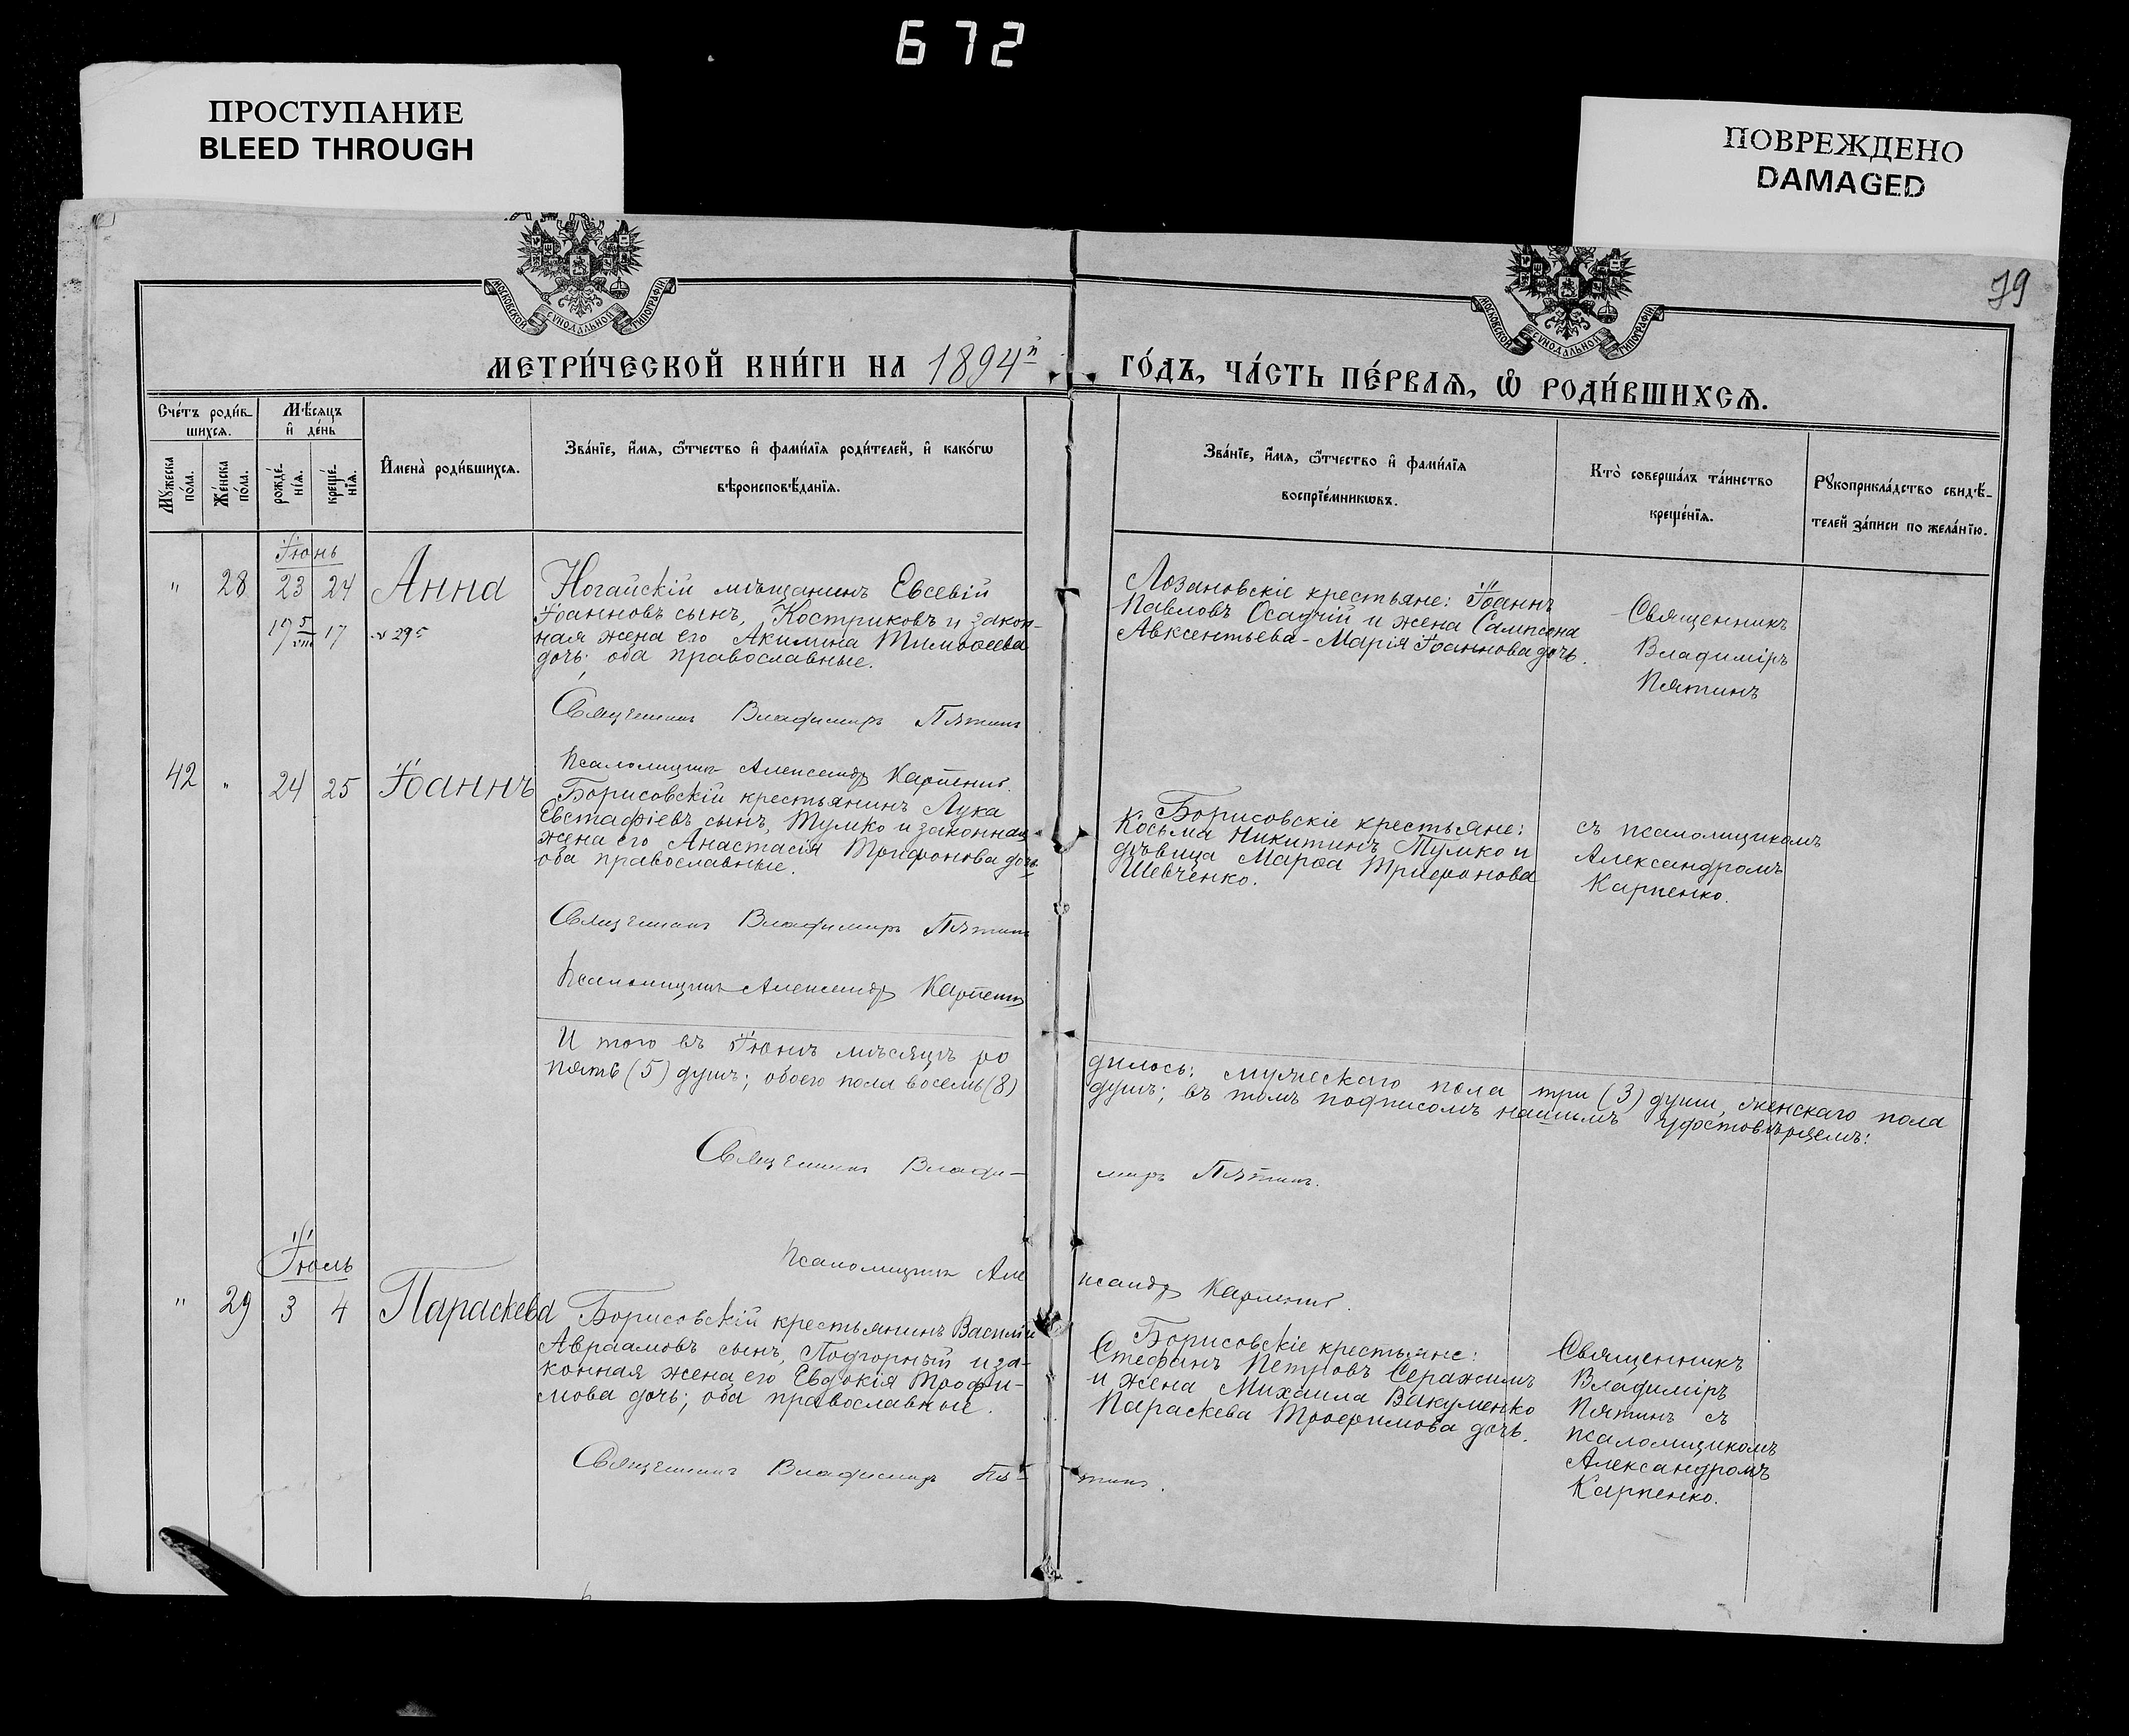 672
ПРОСТУПАНИЕ
BLEED THROUGH
ПОВРЕЖДЕНО
DAMAGED
79
МОСКОВСКОЙ СУНОДАЛЬНОЙ ТИПОГРАФІИ
МОСКОВСКОЙ СУНОДАЛЬНОЙ ТИПОГРАФІИ
МЕТРИ́ЧЕСКОЙ КНИ́ГИ НА 1894й
ГО́ДЪ, ЧА́СТЬ ПЕ́РВАѦ, Ѡ҆ РОДИ́ВШИХСѦ.
Сче́тъ роди́в-
шихсѧ.
Мѣ́сѧцъ
и҆ де́нь
Мꙋ́жеска
по́ла.
Же́нска
по́ла.
рожде́-
нїѧ.
креще́-
нїѧ.
И҆мена̀ роди́вшихсѧ.
Зва́нїе, и҆́мѧ, ѻ҆́тчество и҆ фами́лїѧ роди́телей, и҆ како́гѡ
вѣроисповѣ́данїѧ.
Зва́нїе, и҆́мѧ, ѻ҆́тчество и҆ фами́лїѧ
воспрїе́мникѡвъ.
Кто̀ соверша́лъ та́инство
креще́нїѧ.
Рꙋкоприкла́дство свидѣ́-
телей за́писи по жела́нїю.
Іюнь
" 28 23 24 Анна
19 5/VIII 17 № 295
Ногайскій мѣщанинъ Евсевій
Іоанновъ сынъ, Костриковъ и закон-
ная жена его Акилина Тимоѳеева
дочь; оба православные.
Священникъ Владимиръ Пятинъ
Псаломщикъ Александръ Карпенко.
Лозановскіе крестьяне: Іоаннъ
Павловъ Осадчій и жена Сампсона
Авксентьева - Марія Іоаннова дочь.
Священникъ
Владиміръ
Пятинъ
42 " 24 25 Іоаннъ
Борисовскій крестьянинъ Лука
Евстафіевъ сынъ, Тумко и законная
жена его Анастасія Трифонова дочь
оба православные.
Священникъ Владимиръ Пятинъ
Псаломщикъ Александръ Карпенко
Борисовскіе крестьяне:
Косьма Никитинъ Тумко и
дѣвица Марѳа Трифонова
Шевченко.
съ псаломщикомъ
Александромъ
Карпенко.
И того въ Іюнѣ мѣсяцѣ ро
дилось: мужескаго пола три (3) души, женскаго пола
пять (5) душъ; обоего пола восемь (8)
душъ; въ томъ подписомъ нашимъ удостовѣряемъ:
Священникъ Влади-
миръ Пятинъ.
Псаломщикъ Але
ксандръ Карпенко.
Іюль
" 29 3 4 Параскева
Борисовскій крестьянинъ Василій
Авраамовъ сынъ, Подгорный и за-
конная жена его Евдокія Трофи-
мова дочь; оба православные.
Борисовскіе крестьяне:
Стефанъ Петровъ Серажимъ
и жена Михаила Вакуменко
Параскева Трофимова дочь.
Священникъ
Владиміръ
Пятинъ съ
псаломщикомъ
Александромъ
Карпенко.
Священникъ Владимиръ Пя-
тинъ.